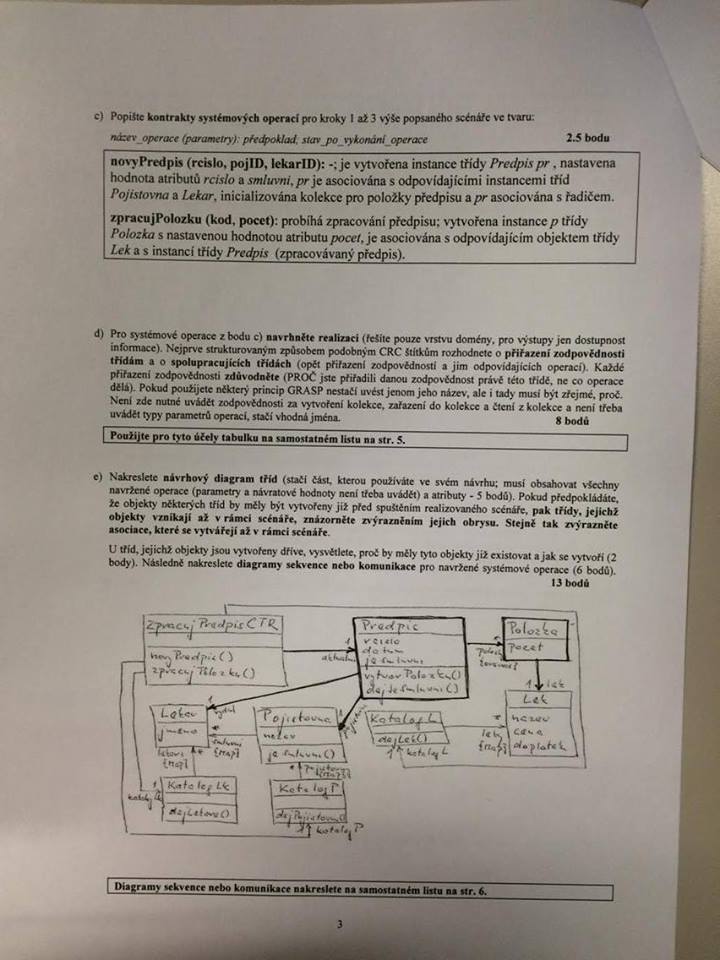 c) Popište kontrakty systémových operací pro kroky 1 až 3 výše popsaného scénáře ve tvaru:
název_operace (parametry): předpoklad; stav_po_vykonání_operace 2.5 bodu
novyPredpis (rcislo, pojID, lekarID): -; je vytvořena instance třídy Predpis pr , nastavena
hodnota atributů rcislo a smluvni, pr je asociována s odpovídajícími instancemi tříd
Pojistovna a Lekar, inicializována kolekce pro položky předpisu a pr asociována s řadičem.
zpracujPolozku (kod, pocet): probíhá zpracování předpisu; vytvořena instance p třídy
Polozka s nastavenou hodnotou atributu pocet, je asociována s odpovídajícím objektem třídy
Lek a s instancí třídy Predpis (zpracovávaný předpis).
d) Pro systémové operace z bodu c) navrhněte realizaci (řešíte pouze vrstvu domény, pro výstupy jen dostupnost
informace). Nejprve strukturovaným způsobem podobným CRC štítkům rozhodnete o přiřazení zodpovědnosti
třídám a o spolupracujících třídách (opět přiřazení zodpovědností a jim odpovídajících operací). Každé
přiřazení zodpovědnosti zdůvodněte (PROČ jste přiřadili danou zodpovědnost právě této třídě, ne co operace
dělá). Pokud použijete některý princip GRASP nestačí uvést jenom jeho název, ale i tady musí být zřejmé, proč.
Není zde nutné uvádět zodpovědnosti za vytvoření kolekce, zařazení do kolekce a čtení z kolekce a není třeba
uvádět typy parametrů operací, stačí vhodná jména. 8 bodů
Použijte pro tyto účely tabulku na samostatném listu na str. 5.
e) Nakreslete návrhový diagram tříd (stačí část, kterou používáte ve svém návrhu; musí obsahovat všechny
navržené operace (parametry a návratové hodnoty není třeba uvádět) a atributy - 5 bodů). Pokud předpokládáte,
že objekty některých tříd by měly být vytvořeny již před spuštěním realizovaného scénáře, pak třídy, jejichž
objekty vznikají až v rámci scénáře, znázorněte zvýrazněním jejich obrysu. Stejně tak zvýrazněte
asociace, které se vytvářejí až v rámci scénáře.
U tříd, jejichž objekty jsou vytvořeny dříve, vysvětlete, proč by měly tyto objekty již existovat a jak se vytvoří (2
body). Následně nakreslete diagramy sekvence nebo komunikace pro navržené systémové operace (6 bodů).
13 bodů
ZpracujPredpisCTR
novyPredpis()
zpracujPolozku()
1
aktualni
Predpis
rcislo
datum
jeSmluvni
vytvorPolozku()
dejJeSmluvni()
Polozka
pocet
1 lek
Lek
nazev
cena
doplatek
Lekar
jmeno
Pojistovna
nazev
jeSmluvni()
KatalogL
dejLek()
1 katalogL
leky
{Map}
lekari
{Map}
smluvni
{Map}
KatalogLk
dejLekare()
KatalogP
dejPojistovnu()
1 katalogP
Diagramy sekvence nebo komunikace nakreslete na samostatném listu na str. 6.
3